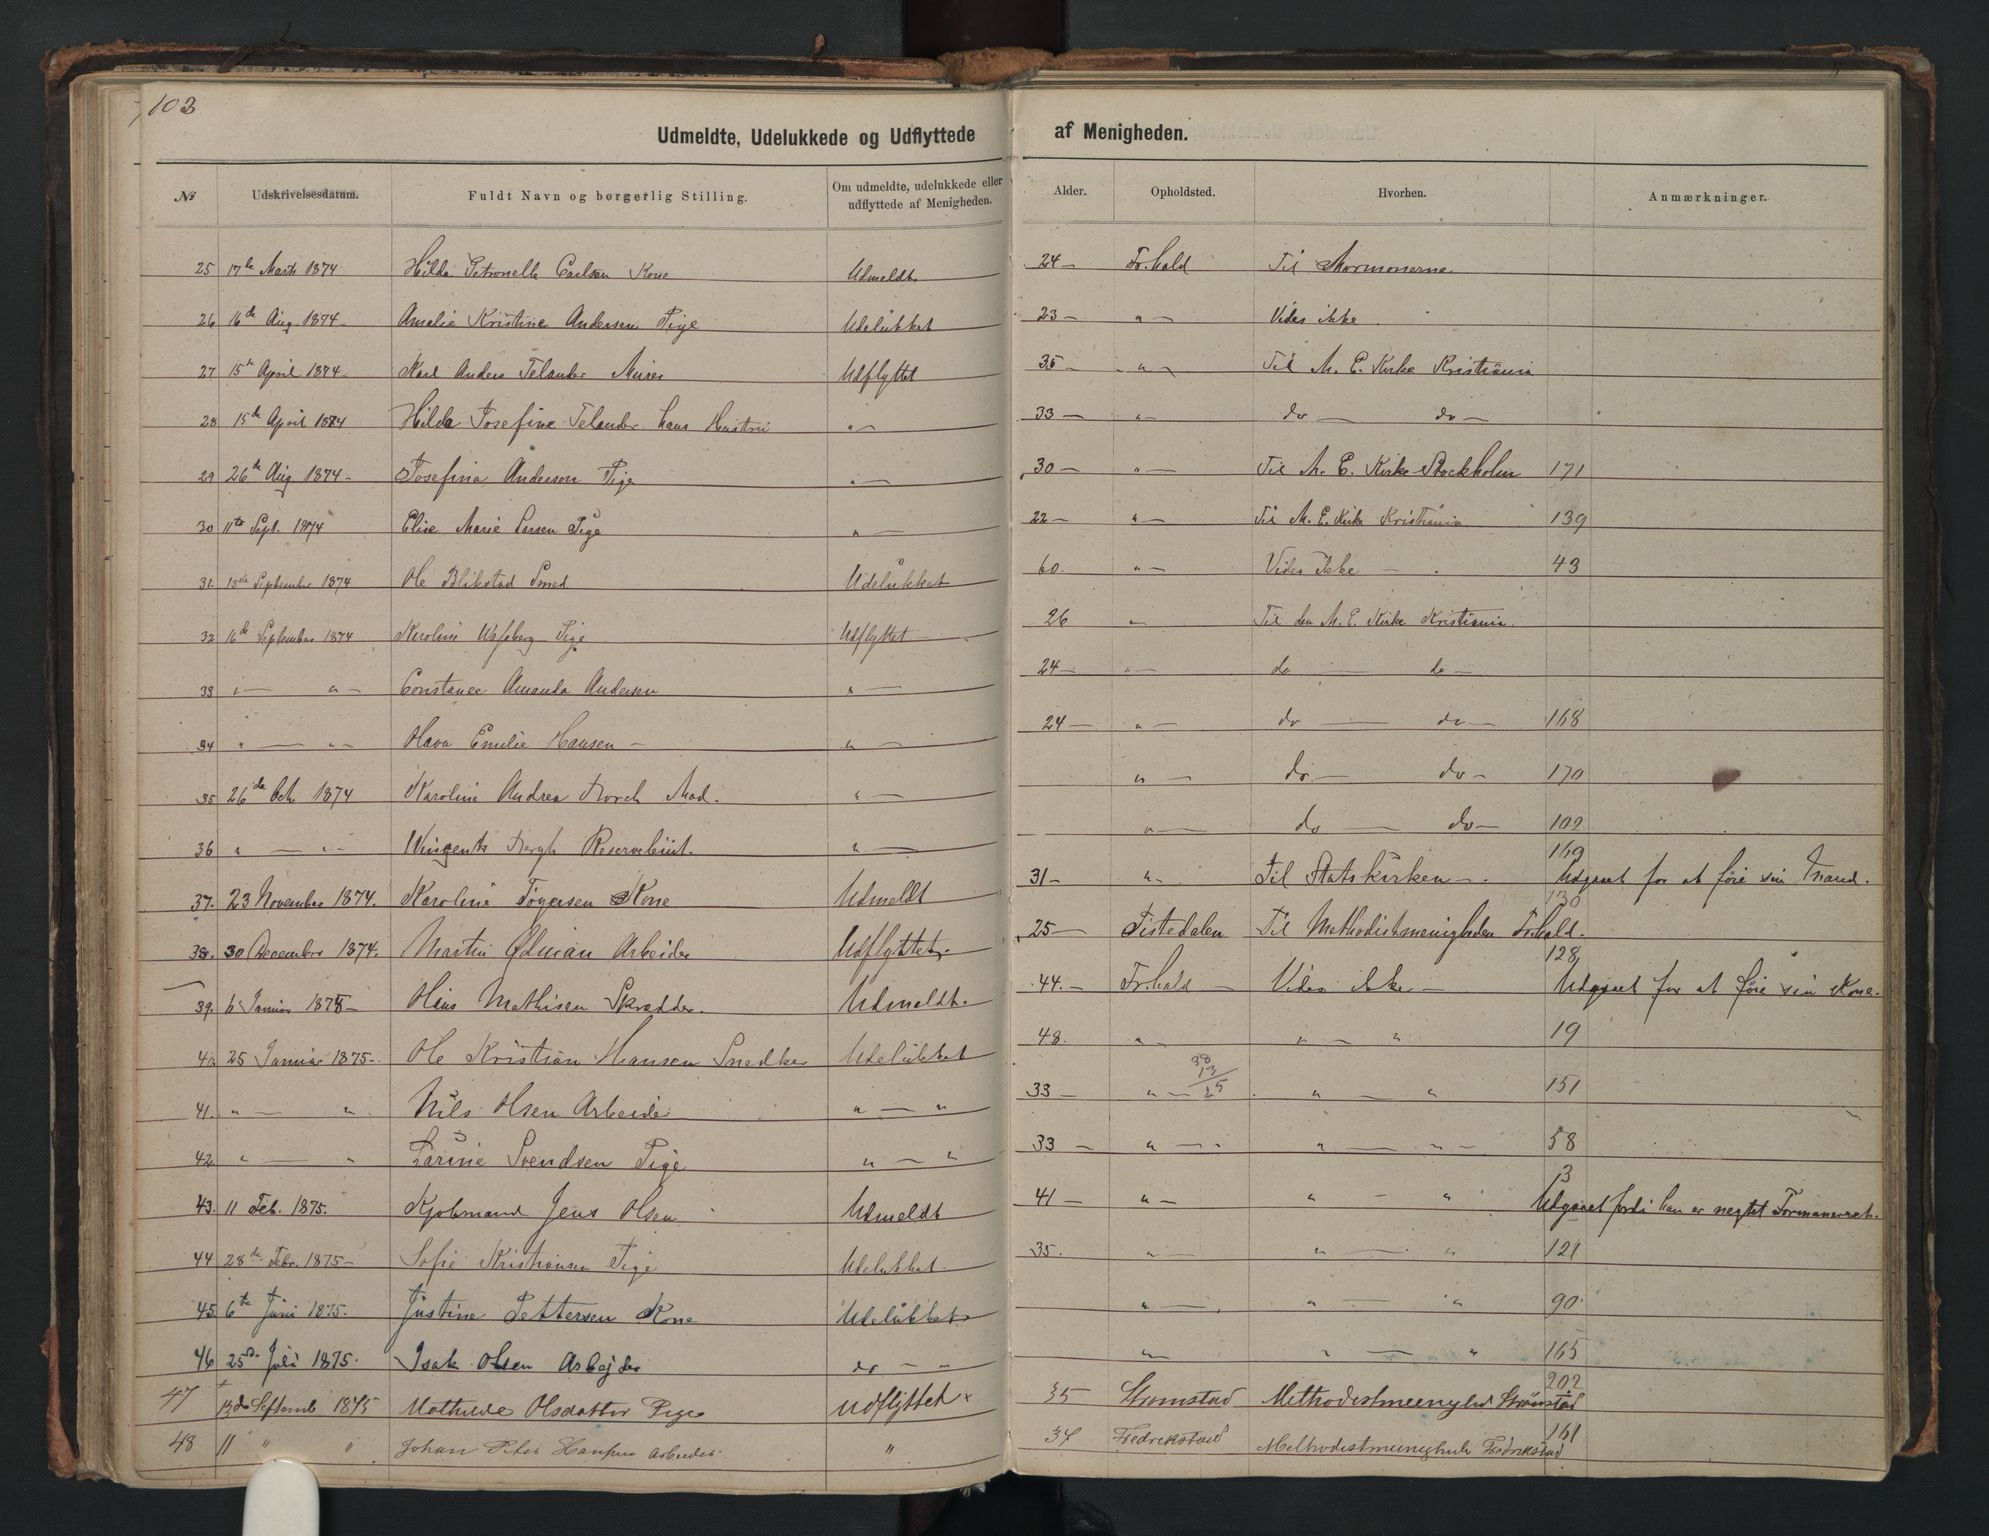 102
Udmeldte, Udelukkede og Udflyttede af Menigheden.
№ Udskrivelsesdatum. Fuldt Navn og borgerlig Stilling. Om udmeldte, udelukkede eller udflyttede af Menigheden. Alder. Opholdsted. Hvorhen. Anmærkninger.
25 17de Marts 1874 Hilda Petronella Carlsen Kone Udmeldt 24 — Fr.hald Til Mormonerne
26 16de Aug 1874 — Amalie Kristine Andersen Pige Udelukket 23 — " — Vides ikke
27 15de April 1874 — Karl Anders Telander Murer Udflyttet 35 — " — Til M. E. Kirke Kristiania
28 15de April 1874 Hilda Josefine Telander hans Hustru " — 33 — " — do — do —
29 26de Aug 1874 — Josefina Andersson Pige " — 30 — " — Til M. E. Kirke Stockholm 171
30 11te Sept. 1874 Elise Marie Larsen Pige " — 22 — " — Til M. E. Kirke Kristiania 139
31. 13de September 1874 Ole Blikstad Smed Udelukket 60. " — Vides Ikke — 43
32 16de September 1874 Karoline Pige Udflyttet 26 " — Til den M. E. Kirke Kristiania.
33 " — " — Constance Amanda Andersen " — 24 — " — do — do —
34 " — " — Olava Emilie Hansen — " — 24 — " — do — do — 168
35 26de Oct. 1874 Karoline Andrea Mad. " — " — do — do — 170
36 " — " — " — — " — do — do — 102
169
37. 23 November 1874. Karoline Tøgersen Kone Udmeldt 31 — " — Til Statskirken — Udgaaet for at føie sin Mand.
130
38. 30 December 1874. Martin Ødman Arbeider Udflyttet. 25 — Tistedalen Til Methodistmenigheden Fr.hald.
128
39. 6 Januar 1875 — Olius Mathisen Skrædder. Udmeldt. 44. — Fr.hald — Vides ikke — Udgaaet for at føie sin Kone.
40 25 Januar 1875 — Ole Kristian Hansen Snedker Udelukket 48. " — " — " 19
41. " — " Nils Olsen Arbeider " — " 33 — " — 38 13 25 " " 151
42. " — " Larine Svendsen Pige " — " 33 — " — " — " — 58
3
43. 11 Feb. 1875. Kjøbmand Jens Olsen Udmeldt 41 — " — " — " Udgaaet fordi han er negtet
44 28de Febr. 1875 — Sofie Kristiansen Pige Udelukket. 35. " — " — " 121
45. 6te Juni 1875. Justine Pettersen Kone Udelukket " — " — " 90
46 25de Juli 1875. Isak Olsen Arbejder do — " " — " — " 165
202
47 13de Septemb 1875 Mathilde Olsdatter Pige udflyttet 35 Strømstad Methodistmenighed Strømstad
161
48 11 " " Johan Peter Hansen Arbeider " 37 Fredrikstad Methodistmenighed Fredrikstad